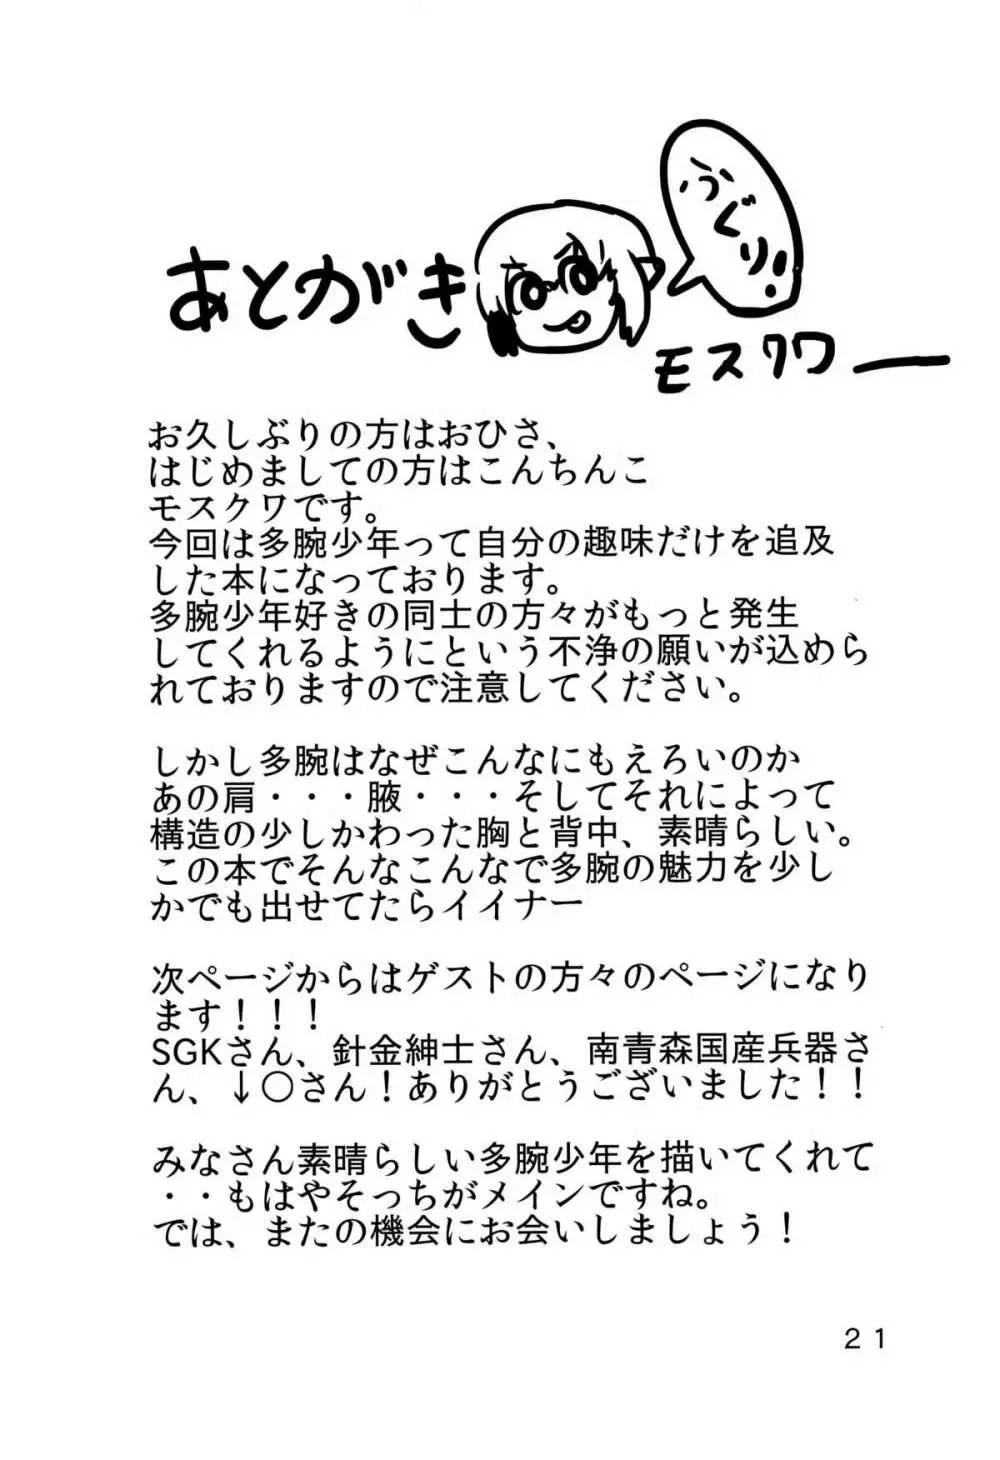 あとがき
ふぐり!!
モスクワー
お久しぶりの方はおひさ、
はじめましての方はこんちんこ
モスクワです。
今回は多腕少年って自分の趣味だけを追及
した本になっております。
多腕少年好きの同士の方々がもっと発生
してくれるようにという不浄の願いが込めら
れておりますので注意してください。
しかし多腕はなぜこんなにもえろいのか
あの肩・・・腋・・・そしてそれによって
構造の少しかわった胸と背中、素晴らしい。
この本でそんなこんなで多腕の魅力を少し
かでも出せてたらイイナー
次ページからはゲストの方々のページになり
ます！！！
SGKさん、針金紳士さん、南青森国産兵器さ
ん、↓〇さん！ありがとうございました！！
みなさん素晴らしい多腕少年を描いてくれて
・・もはやそっちがメインですね。
では、またの機会にお会いしましょう！
２１